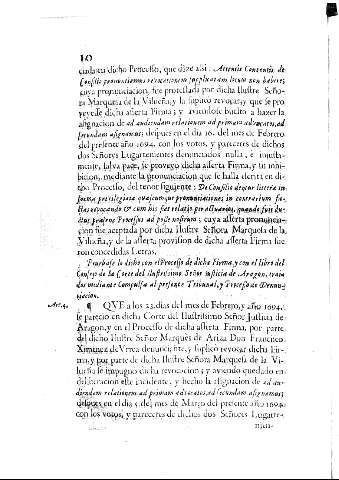 10
cada en dicho Processo, que dize assi: Attentis Contentis, de
Consilio pronunciamus revocationem supplicatam locum non habere;
cuya pronunciacion, fue protestada por dicha Ilustre Seño-
ra Marquesa de la Vilueña, y la suplicò revocar, y que se pro
veyesse dicha asserta Firma; y aviendose buelto a hazer la
asignacion de ad audiendum relationem ad primam advocatos, ad
secundam assignamus; despues en el dia 16. del mes de Febrero
del presente año 1694. con los votos, y pareceres de dichos
dos Señores Lugartenientes denunciados nulla, e injusta-
mente, salva pace, se proveyò dicha asserta Firma, y su inhi-
bicion, mediante la pronunciacion que se halla en di-
cho Processo, del tenor siguiente: De Consilio
forma privilegiata pronuntiationes in contrarium fa-
revocando & cum his fue relatio
presens Processus ad pole nostrum; cuya asserta pronuncia-
cion fue aceptada por dicha Ilustre Señora Marquesa de la
Vilueña, y de la asserta provision de dicha asserta Firma fue
ron concedidas Letras.
Pruebase lo dicho con el Processo de dicha Firma, y con el libro del
Consejo de la Corte del Ilustrissimo Señor Iusticia de Aragon, traia
dos mediante Compulsa al presente Tribunal, y Processo de Denun-
ciacion.
Art. 4. ¶ QVE a los 23. dias del mes de Febrero, y año 1694.
se parecio en dicha Corte del Ilustrissimo Señor Justicia de
Aragon, y en el Processo de dicha asserta Firma, por parte
del dicho Ilustre Señor Marquès de Ariza Don Francisco
Ximenez de Vrrea denunciante, y suplicò revocar dicha Fir-
ma, y por parte de dicha Ilustre Señora Marquesa de la Vi-
lueña se impugnò dicha revocacion; y aviendo quedado en
deliberacion este incidente, y hecho la asignacion de ad au-
diendum relationem ad primam advocatos, ad secundam assignamus;
despues en el dia 5. del mes de Março del presente año 1694.
con los votos, y pareceres de dichos dos Señores Lugarte-
nien-